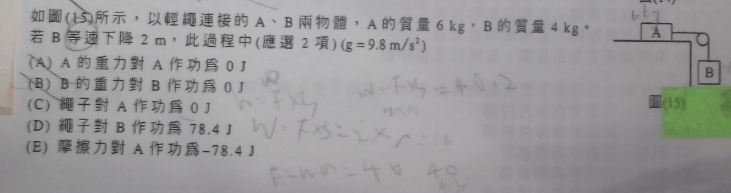 如圖(15)所示，以輕繩連接的 A、B 兩物體，A 的質量 6 kg，B 的質量 4 kg。
若 B 等速下降 2 m，此過程中(應選 2 項)(g=9.8 m/s²)
(A) A 的重力對 A 作功為 0 J
(B) B 的重力對 B 作功為 0 J
(C) 繩子對 A 作功為 0 J
(D) 繩子對 B 作功為 78.4 J
(E) 摩擦力對 A 作功為−78.4 J
6kg
A
B
圖(15)